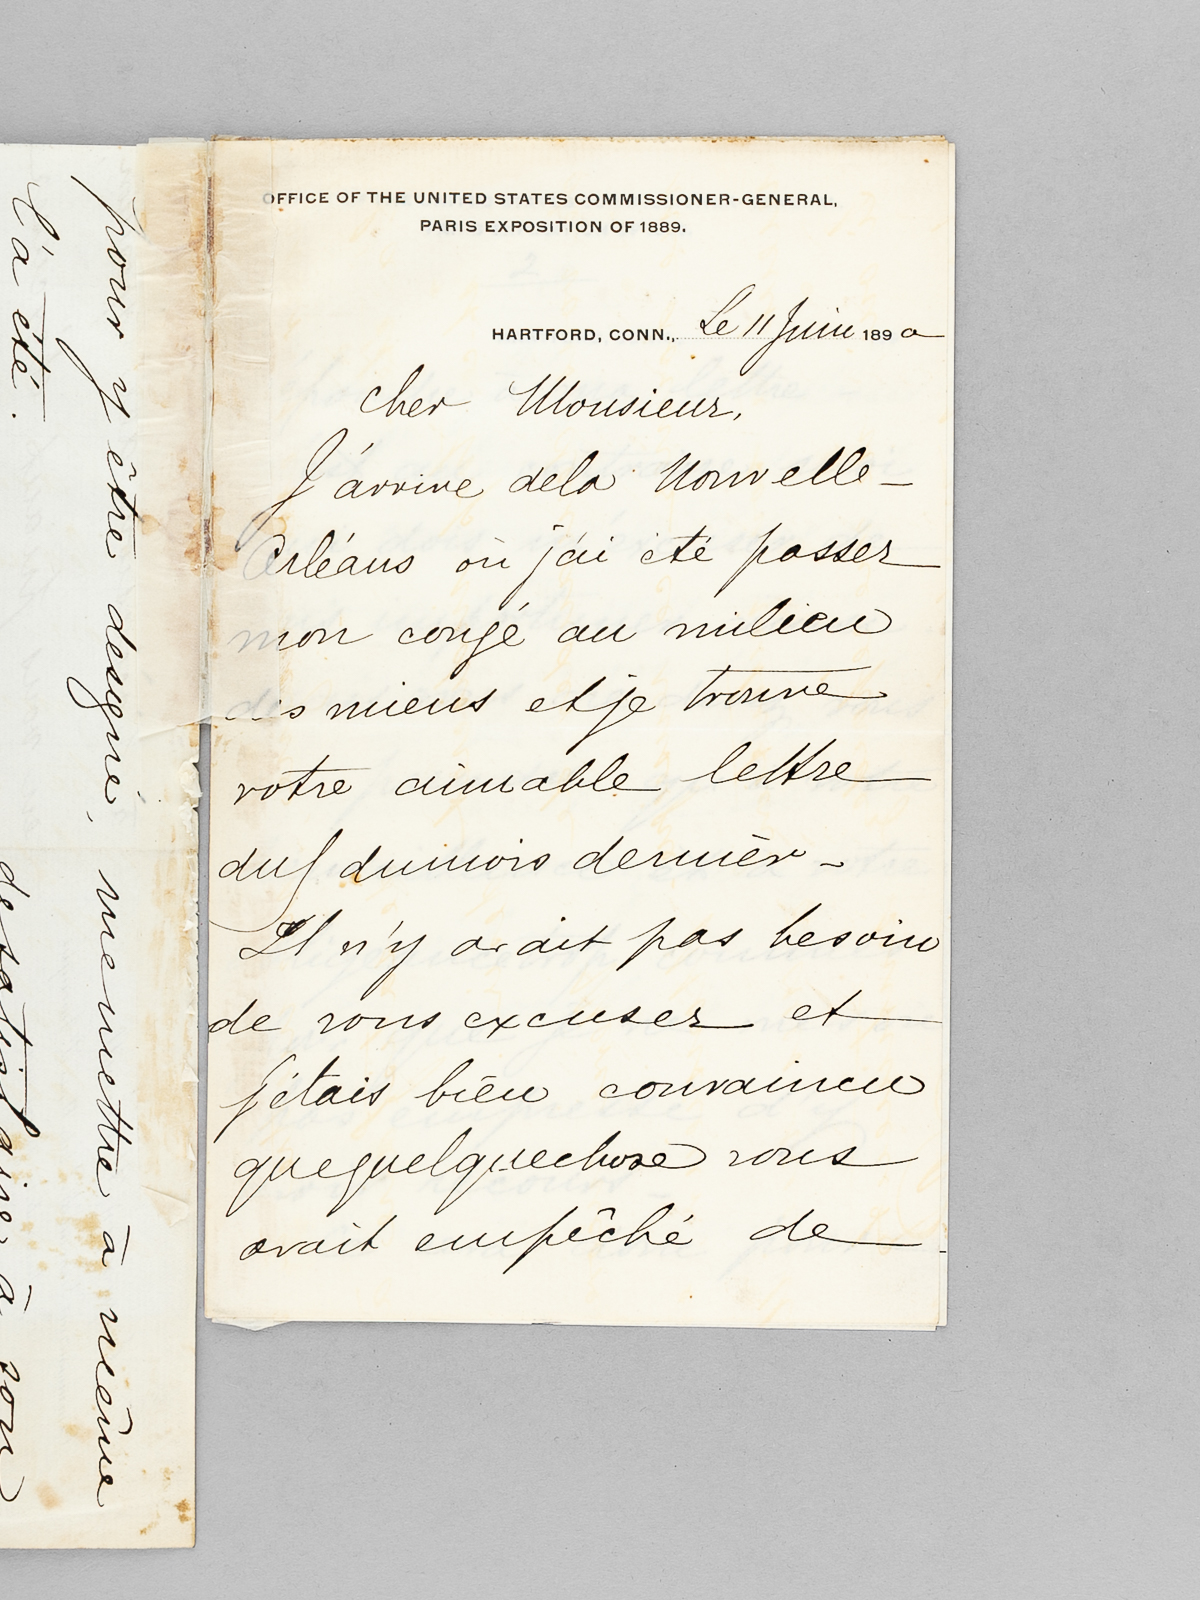 OFFICE OF THE UNITED STATES COMMISSIONER-GENERAL,
PARIS EXPOSITION OF 1889.
HARTFORD, CONN., Le 11 Juin 1890
Cher Monsieur,
J'arrive de la Nouvelle-
Orléans où j'ai été passer
mon congé au milieu
des miens et je trouve
votre aimable lettre
du 5 du mois dernier -
Il n'y avait pas besoin
de vous excuser et
j'étais bien convaincu
que quelque chose vous
avait empêché de
pour y être designé, me mettre à même
l'a été.